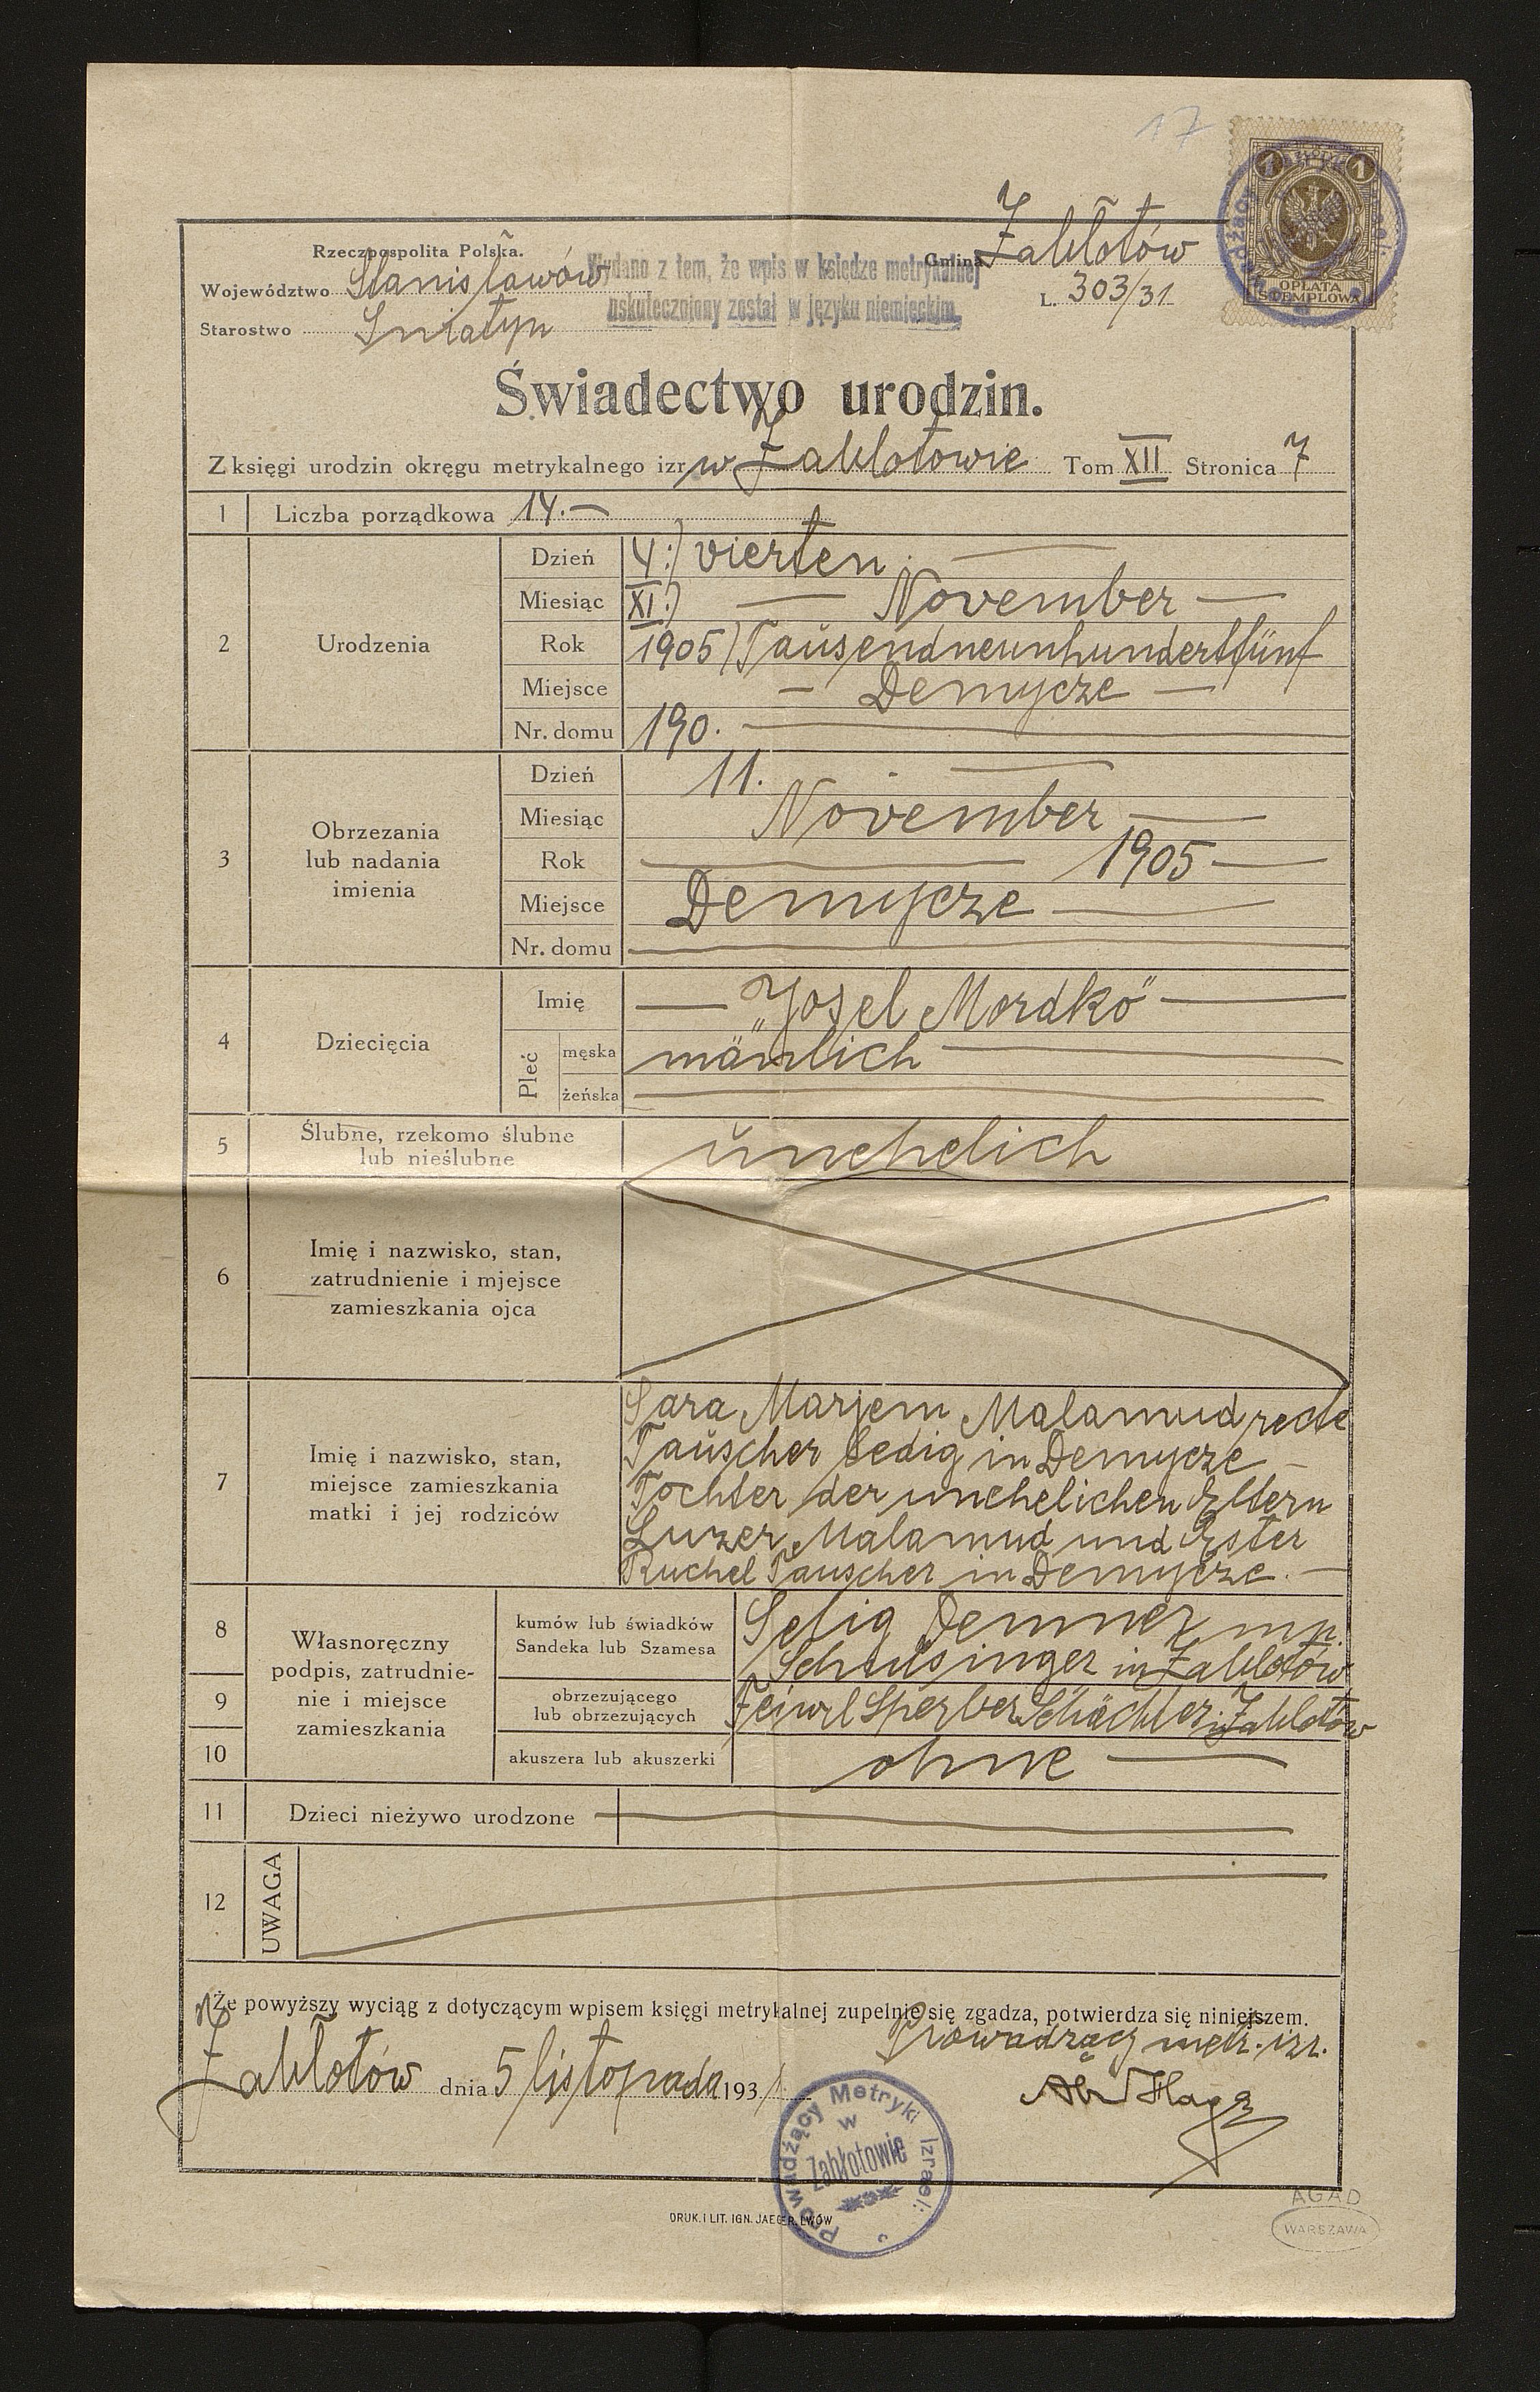 17
1 1
OPŁATA
STEMPLOWA
Rzeczpospolita Polska.
Województwo Stanisławów
Starostwo Sniatyn
Wydano z tem, że wpis w księdze metrykalnej
uskuteczniony został w języku niemieckim.
Gmina Zabłotów
L. 303/31
Świadectwo urodzin.
Z księgi urodzin okręgu metrykalnego izr. w Zabłotowie Tom XII Stronica 7
1 Liczba porządkowa 14.—
2 Urodzenia
Dzień 4:) vierten
Miesiąc XI.) — November —
Rok 1905) Tausendneunhundertfünf
Miejsce — Demycze —
Nr. domu 190.
3 Obrzezania
lub nadania
imienia
Dzień 11.
Miesiąc November —
Rok 1905 —
Miejsce Demycze —
Nr. domu —
4 Dziecięcia
Imię — „Josel Mordko" —
Płeć
męska mänlich —
żeńska —
5 Ślubne, rzekomo ślubne
lub nieślubne
unehelich
6 Imię i nazwisko, stan,
zatrudnienie i mjejsce
zamieszkania ojca
7 Imię i nazwisko, stan,
miejsce zamieszkania
matki i jej rodziców
Sara Marjem Malamud recte
Tauscher ledig in Demycze —
Tochter der unehelichen Eltern
Luzer Malamud und Ester
Ruchel Tauscher in Demycze. —
Własnoręczny
podpis, zatrudnie-
nie i miejsce
zamieszkania
8 kumów lub świadków
Sandeka lub Szamesa
Selig Demner mp.
Schulsinger in Zabłotów
9 obrzezującego
lub obrzezujących
Feiwel Sperber Schächter in Zabłotów
10 akuszera lub akuszerki ohne —
11 Dzieci nieżywo urodzone —
12 UWAGA
Że powyższy wyciąg z dotyczącym wpisem księgi metrykalnej zupełnie się zgadza, potwierdza się niniejszem.
Prowadzący metr. izr.
Zabłotów dnia 5 listopada 1931
Prowadzący Metryki Izrael:
w
Zabłotowie
DRUK. I LIT. IGN. JAEGER. LWÓW
AGAD
WARSZAWA